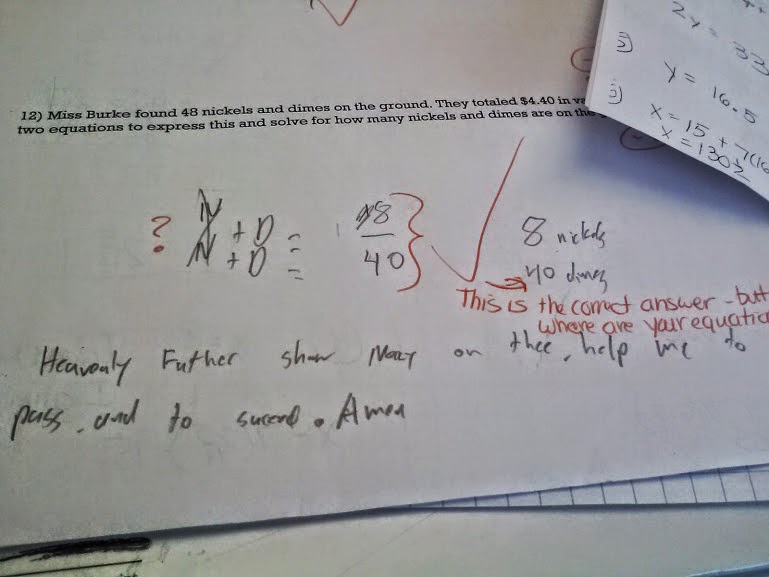 2y = 33
5)
y = 16.5
x = 15 + 7(16
x = 130
12) Miss Burke found 48 nickels and dimes on the ground. They totaled $4.40 in
two equations to express this and solve for how many nickels and dimes are on the
? N + D = 48
N + D = 40
8 nickels
40 dimes
This is the correct answer - but
where are your equation
Heavenly Futher show Mercy on thee, help me to
pass, and to succeed. Amen